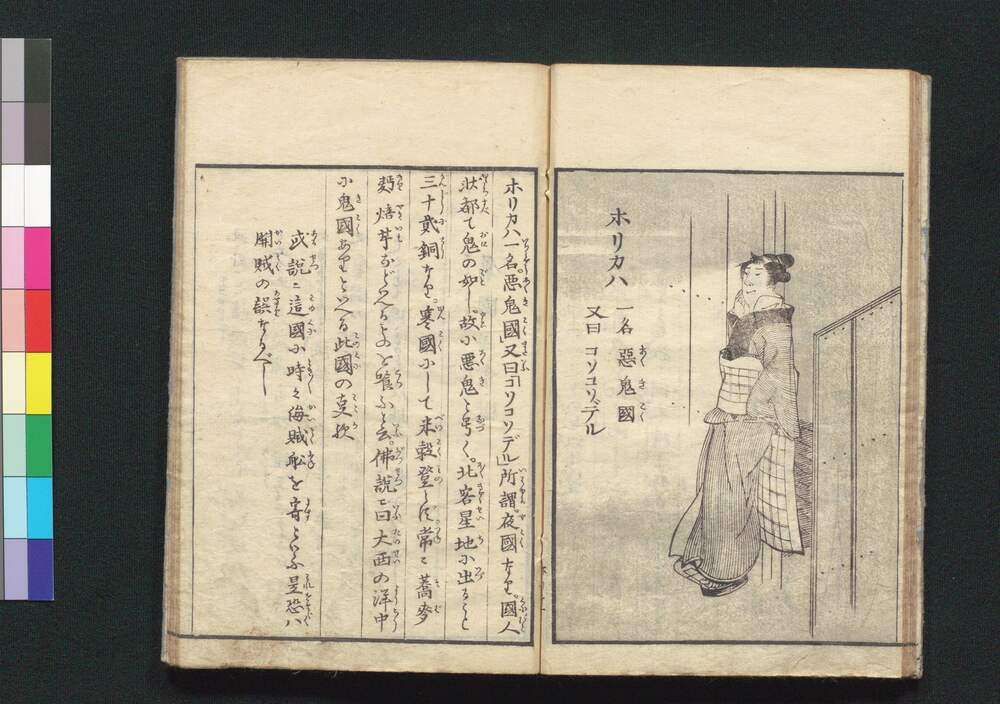 ホリカハ
一名 惡鬼國
又曰 コソコソデル
ホリカハ一名惡鬼國又曰「コソコソデル」所謂夜國なり。國人
狀都て鬼の如し。故に悪鬼と号く。北客星地に出ること
三十貮銅なり。寒國にして米穀登らず。常に蕎麥
麪焙芋などやうるものを喰ふと云。佛説に曰大西の洋中
に鬼國ありといへる此國の支歟
或説に這國に時々海賊舩を寄といふ是恐ハ
開賊の誤なるべし